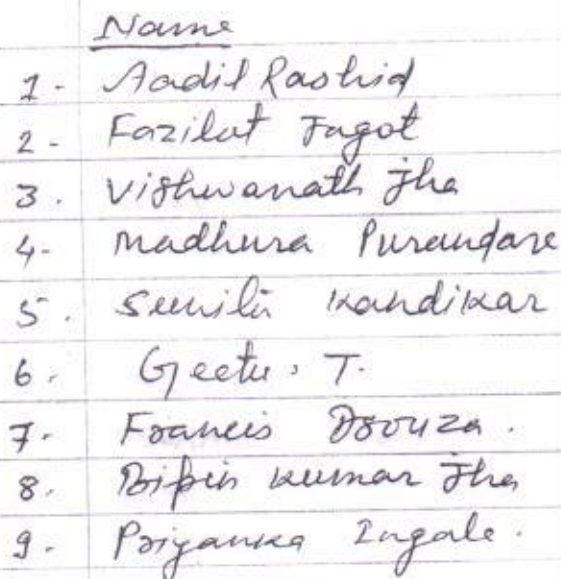 Name
1- Aadil Rashid
2- Fazilat Jagot
3. Vishwanath Jha
4- Madhura Purandare
5. Sunila Kandikar
6. Geetu. T.
7. Francis Dsouza.
8. Bipin Kumar Jha
9- Priyanka Ingale.